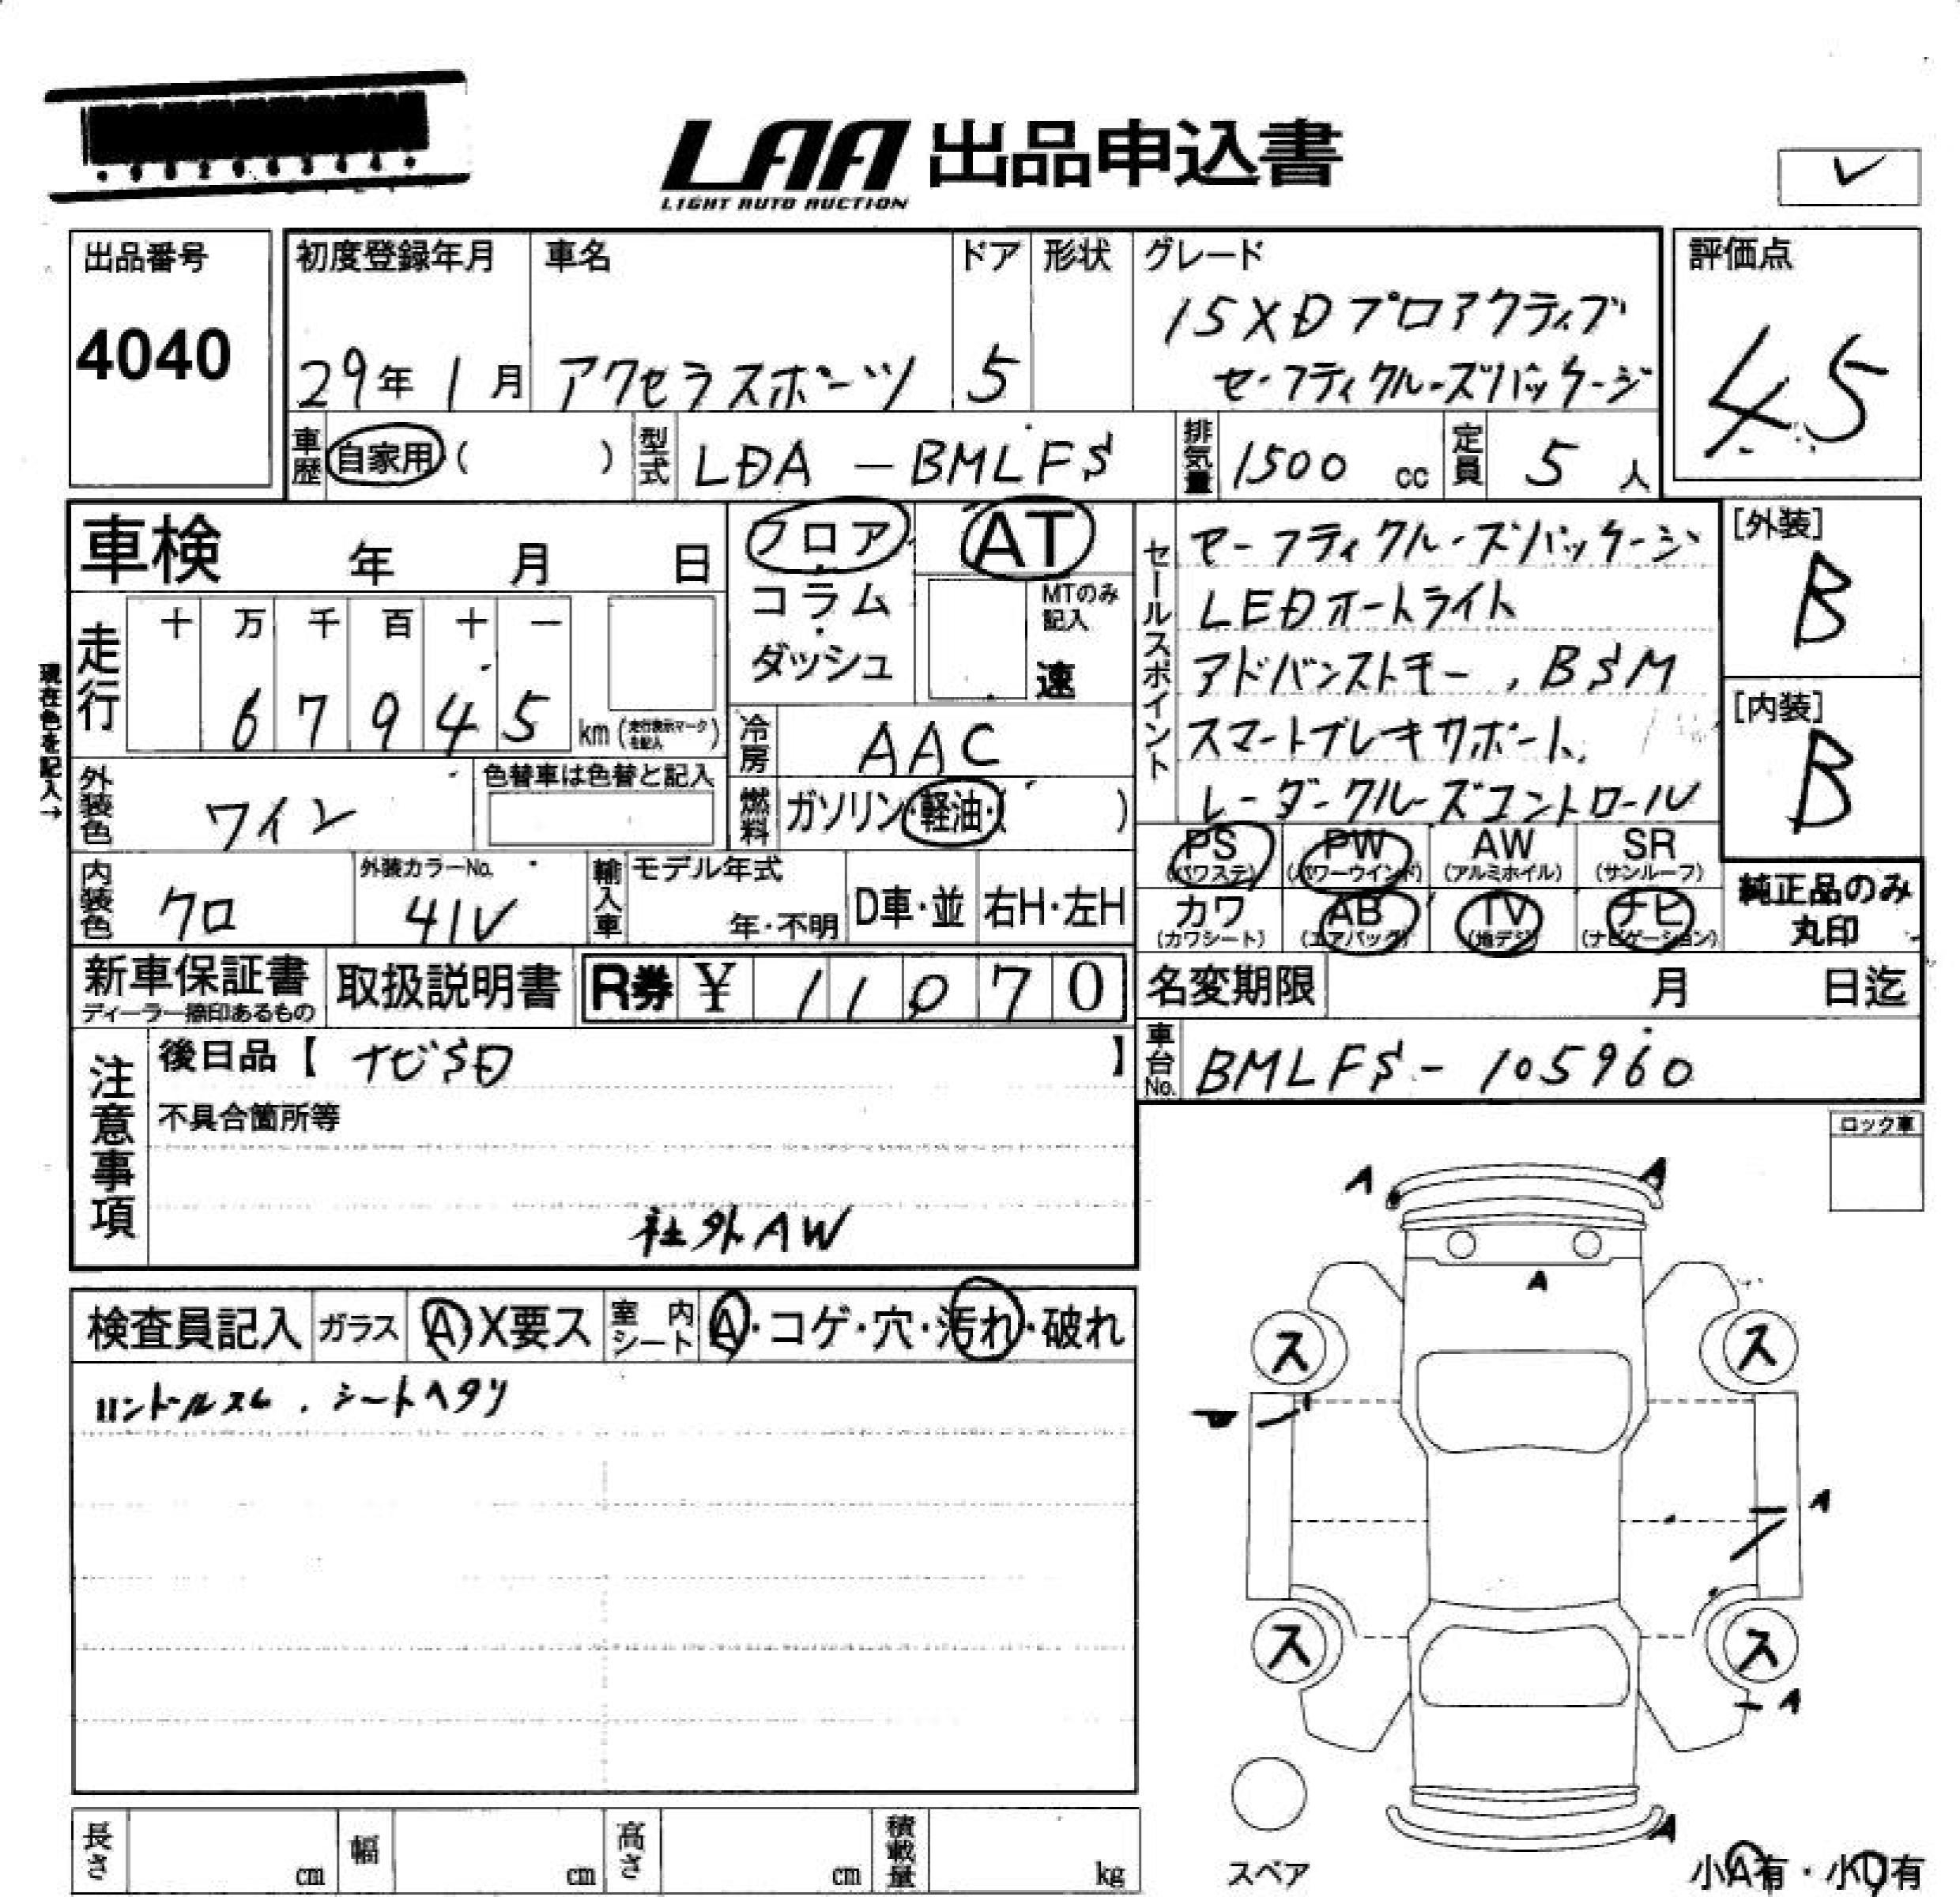 LAA 出品申込書
LIGHT AUTO AUCTION
✓
出品番号
4040
初度登録年月
29年 1月
車名
アクセラスポーツ
ドア
5
形状
グレード
15XD プロアクティブ
セーフティクルーズパッケージ
評価点
4.5
車歴 自家用 ( )
型式 LDA-BMLFS
排気量 1500 cc
定員 5 人
車検 年 月 日
フロア
コラム
・
ダッシュ
AT
MTのみ
記入
速
セールスポイント
セーフティクルーズパッケージ
LEDオートライト
アドバンストキー、BSM
スマートブレーキサポート、
レーダークルーズコントロール
[外装]
B
[内装]
B
現在色を記入→
走行
十 万 千 百 十 一
6 7 9 4 5 km (走行表示マークを記入)
冷房 AAC
外装色 ワイン
色替車は色替と記入
燃料 ガソリン・軽油・( )
PS (パワステ)
PW (パワーウインド)
AW (アルミホイル)
SR (サンルーフ)
カワ (カワシート)
AB (エアバッグ)
TV (地デジ)
ナビ (ナビゲーション)
純正品のみ
丸印
内装色 クロ
外装カラーNo.
41V
輸入車
モデル年式
年・不明
D車・並
右H・左H
新車保証書
ディーラー捺印あるもの
取扱説明書
R券 ¥ 1 1 0 7 0
名変期限 月 日迄
注意事項
後日品【 ナビSD 】
不具合箇所等
社外AW
車台No. BMLFS-105960
ロック車
検査員記入
ガラス A X要ス
室内シート A・コゲ・穴・汚れ・破れ
ハンドルスレ、シートヘタリ
A
A
A
ス
ス
A
ス
ス
A
A
スペア
小A有・小U有
長さ cm
幅 cm
高さ cm
積載量 kg